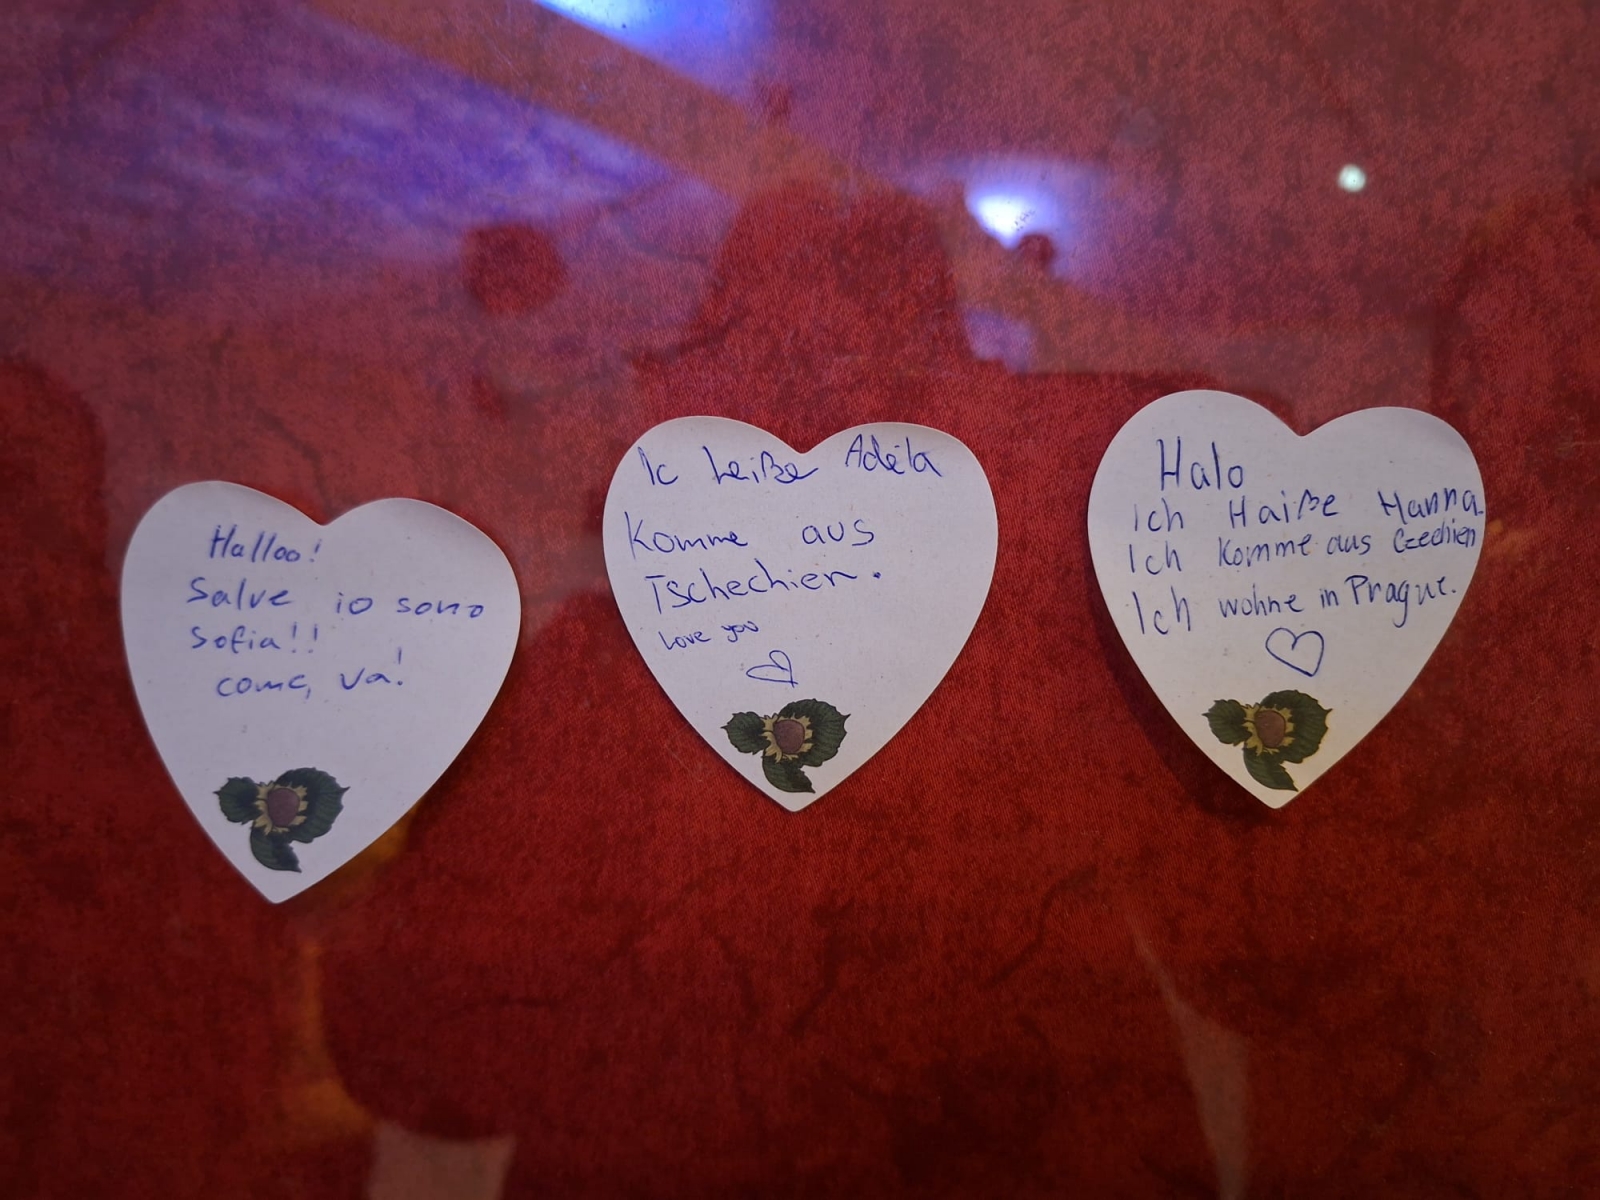 Halloo!
Salve io sono
Sofia!!
come, va!
Ic heiße Adéla
Komme aus
Tschechien.
Love you
Halo
Ich Haiße Hanna.
Ich Komme aus Czechien
Ich wohne in Prague.